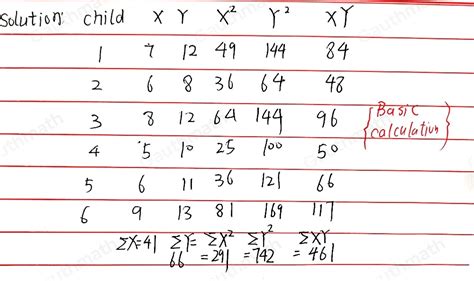 Solution child X Y X² Y² XY
1 7 12 49 144 84
2 6 8 36 64 48
3 8 12 64 144 96 {Basic calculation}
4 5 10 25 100 50
5 6 11 36 121 66
6 9 13 81 169 117
ΣX=41 ΣY= ΣX² ΣY² ΣXY
66 =291 =742 =461